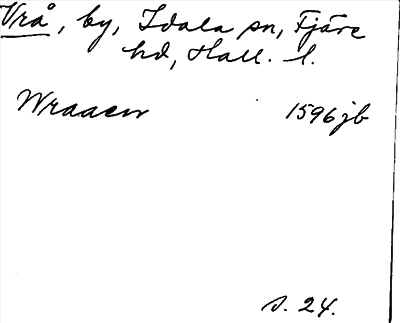 Vrå, by, Idala sn, Fjäre
hd, Hall. l.
Wraaen 1596 jb
s. 24.